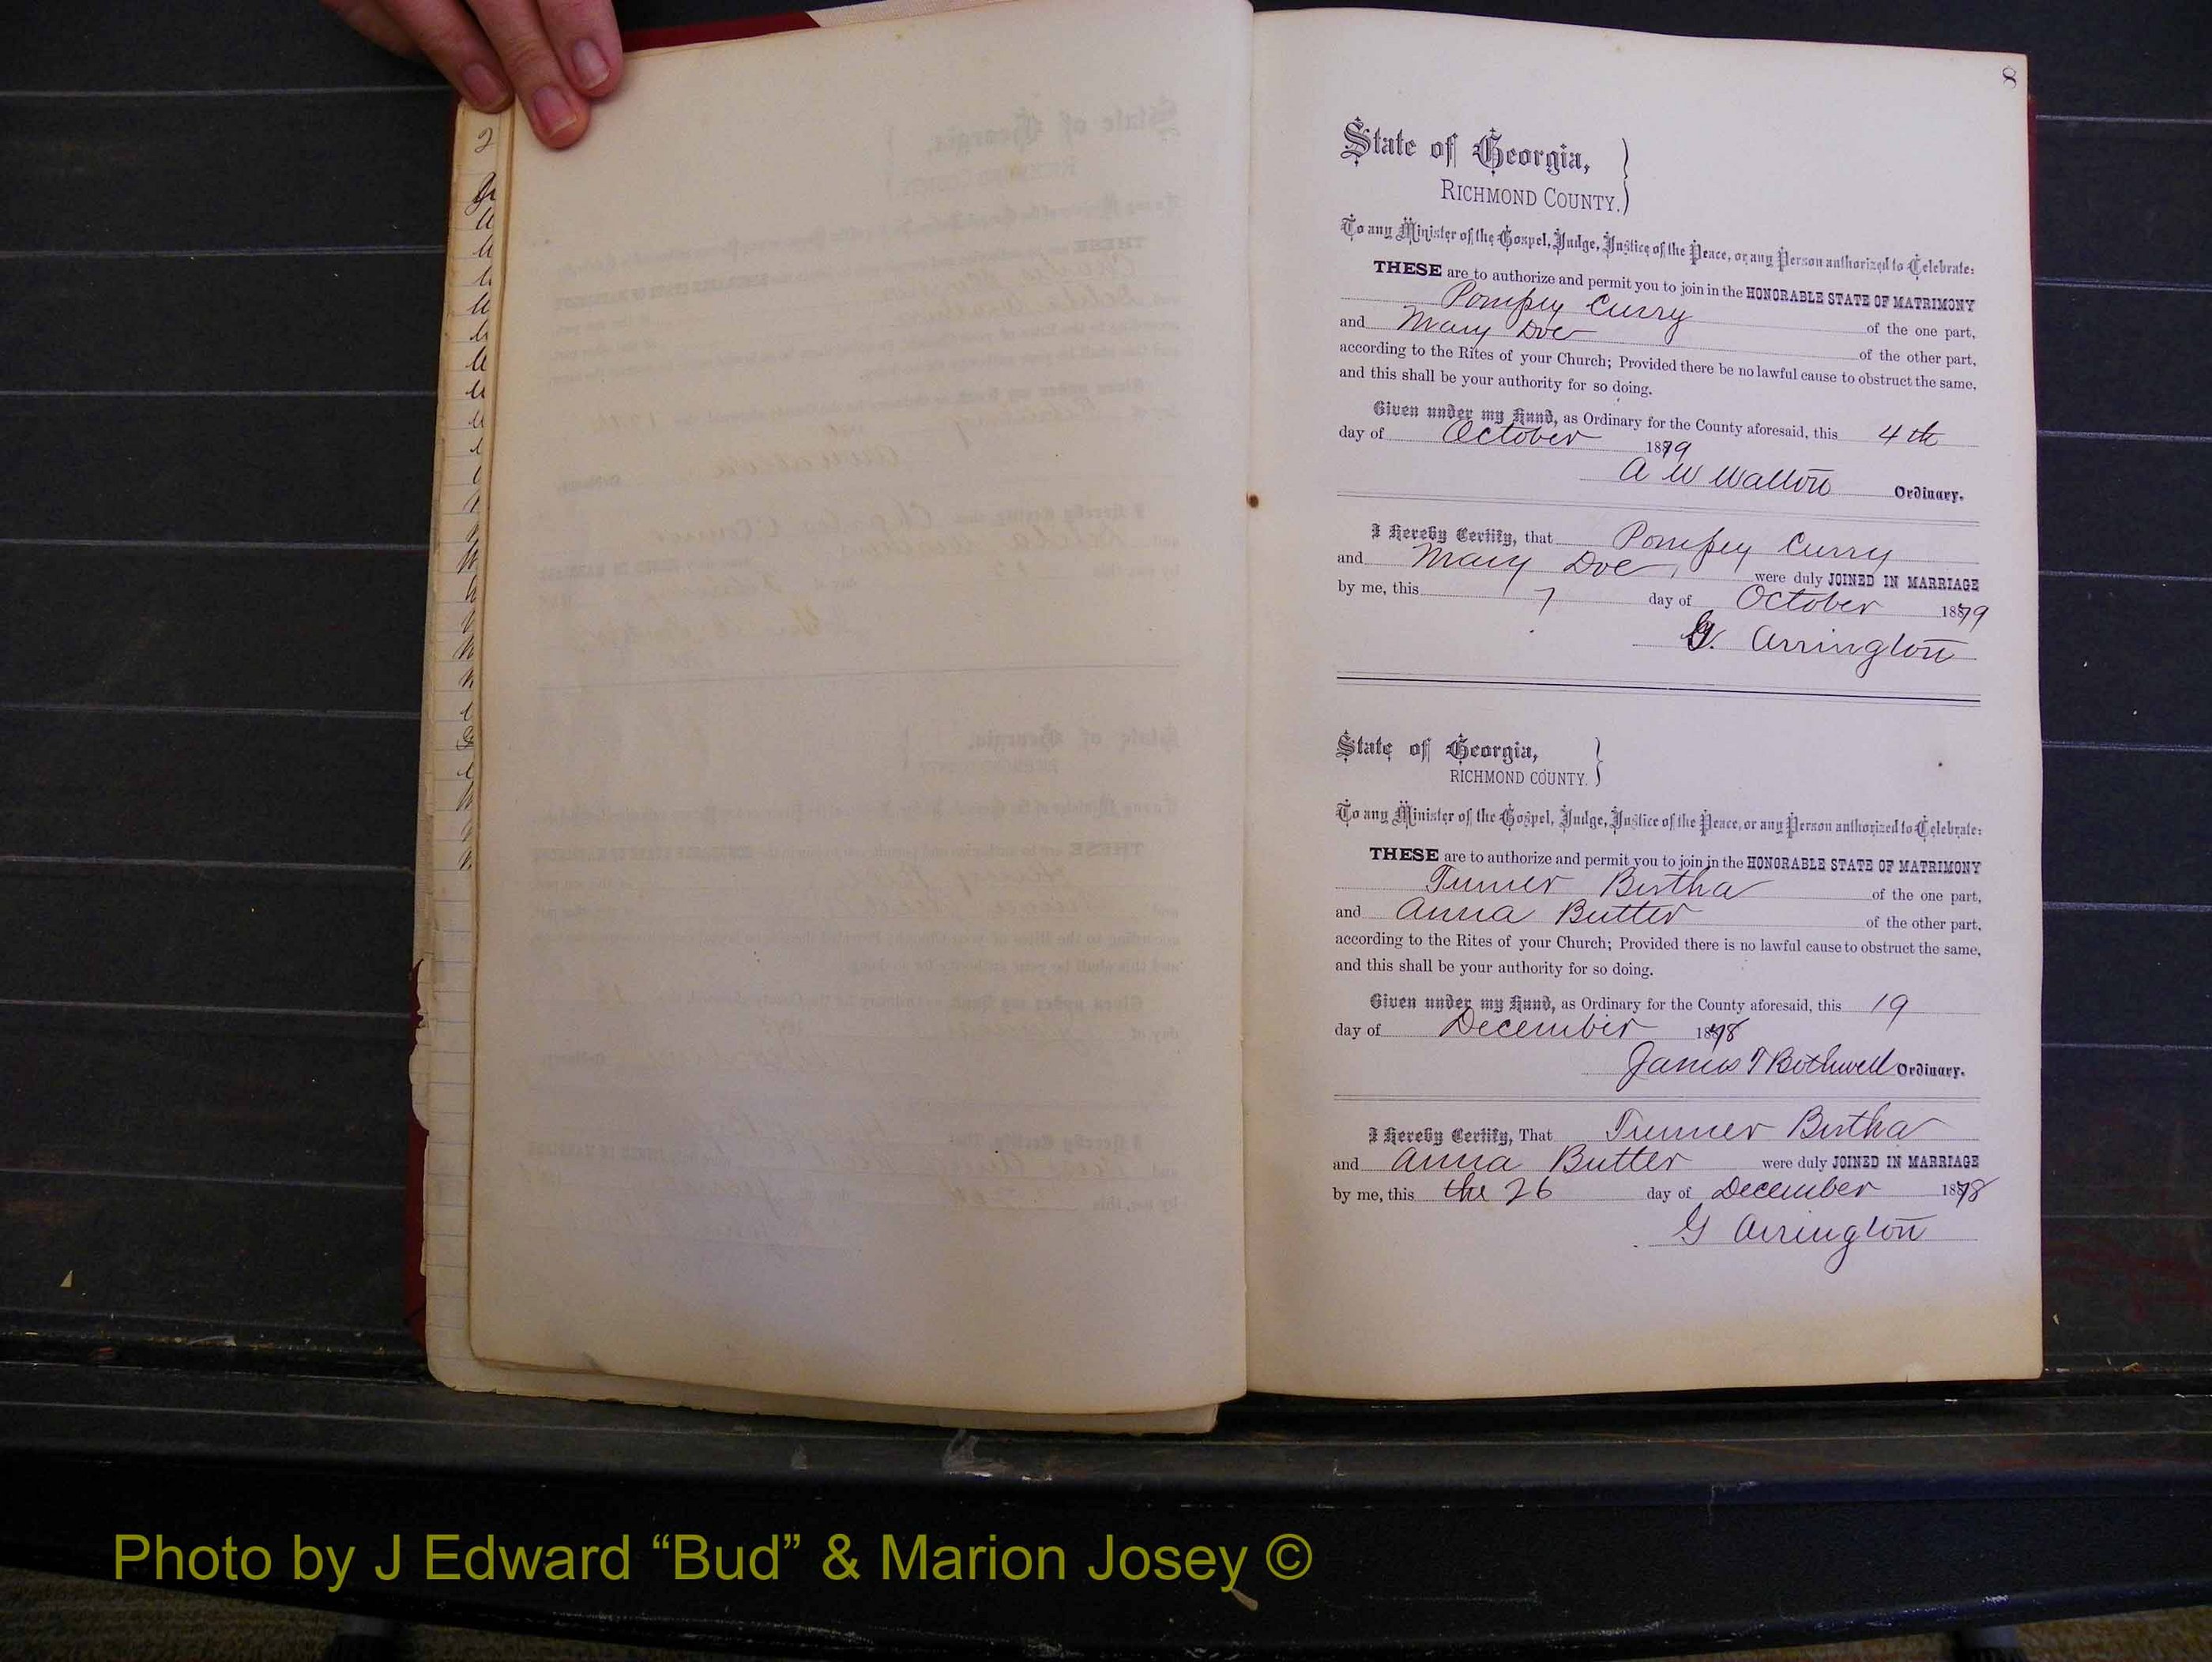 8
State of Georgia,
RICHMOND COUNTY.
To any Minister of the Gospel, Judge, Justice of the Peace, or any Person authorized to Celebrate:
THESE are to authorize and permit you to join in the HONORABLE STATE OF MATRIMONY
Pompey Curry of the one part,
and Mary Doe of the other part,
according to the Rites of your Church; Provided there be no lawful cause to obstruct the same,
and this shall be your authority for so doing.
Given under my Hand, as Ordinary for the County aforesaid, this 4th
day of October 1879
A W Walton Ordinary.
I Hereby Certify, that Pompey Curry
and Mary Doe, were duly JOINED IN MARRIAGE
by me, this 7 day of October 1879
G. Arrington
State of Georgia,
RICHMOND COUNTY.
To any Minister of the Gospel, Judge, Justice of the Peace, or any Person authorized to Celebrate:
THESE are to authorize and permit you to join in the HONORABLE STATE OF MATRIMONY
Turner Birtha of the one part,
and Anna Butter of the other part,
according to the Rites of your Church; Provided there is no lawful cause to obstruct the same,
and this shall be your authority for so doing.
Given under my Hand, as Ordinary for the County aforesaid, this 19
day of December 1878
James T Bothwell Ordinary.
I Hereby Certify, That Turner Birtha
and Anna Butter were duly JOINED IN MARRIAGE
by me, this the 26 day of December 1878
G Arrington
Photo by J Edward “Bud” & Marion Josey ©